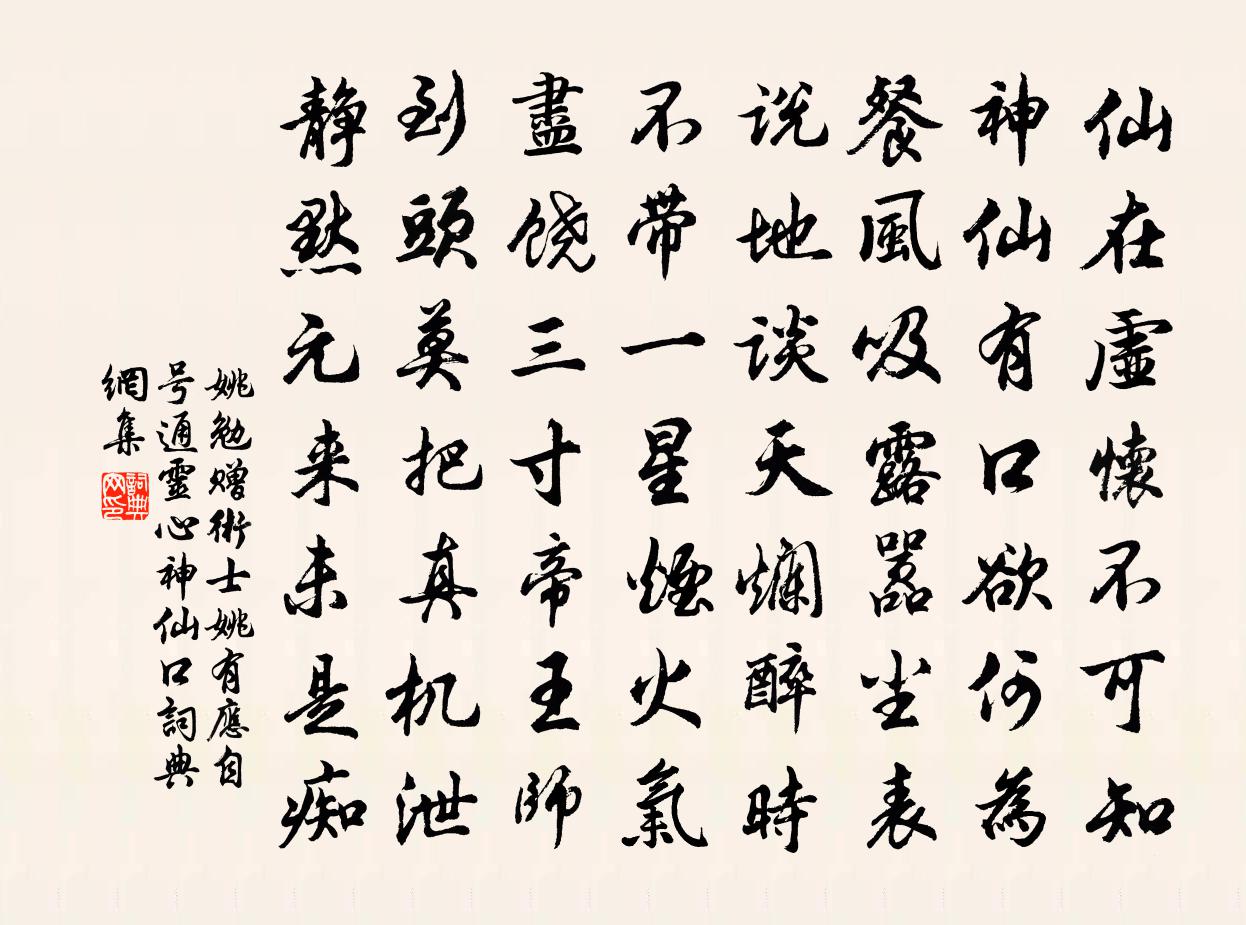 仙在虛懷不可知
神仙有口欲何為
餐風吸露囂尘表
说地谈天爛醉時
不带一星煙火氣
盡饶三寸帝王師
到頭莫把真机泄
靜默元来未是痴
姚勉赠術士姚有應自
号通靈心神仙口詞典
網集
詞典
网印